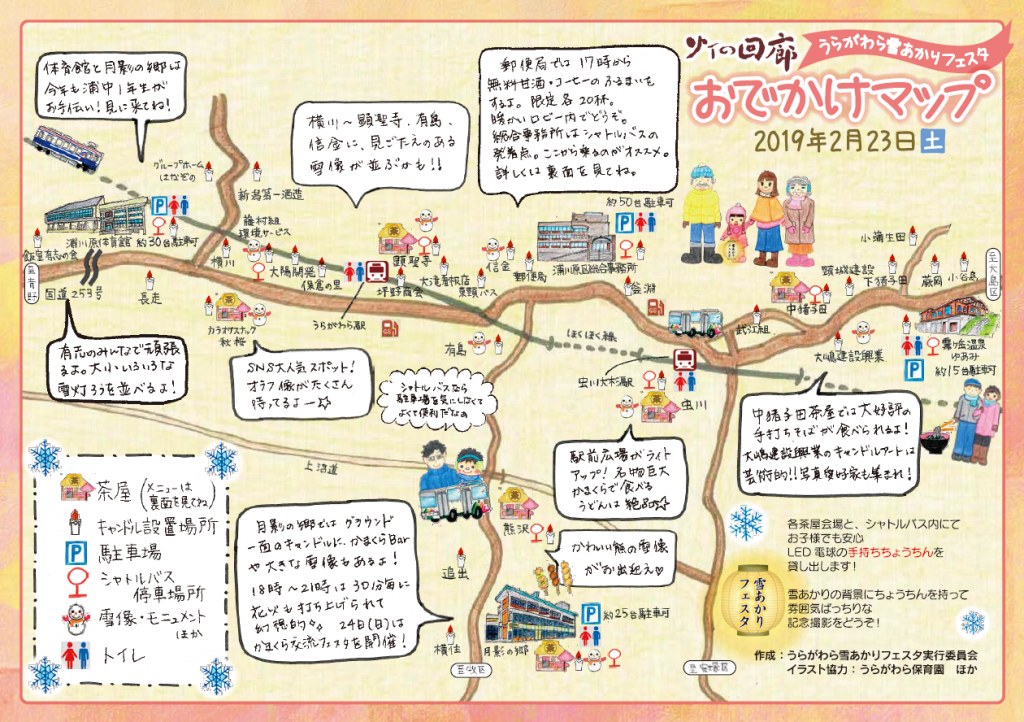 灯の回廊
うらがわら雪あかりフェスタ
おでかけマップ
2019年2月23日土
体育館と月影の郷は
今年も浦中1年生が
お手伝い!見に来てね!
横川〜顕聖寺、有島、
信金に、見ごたえのある
雪像が並ぶかも!!
郵便局では17時から
無料甘酒・コーヒーのふるまいを
するよ。限定各20杯。
暖かいロビー内でどうぞ。
総合事務所はシャトルバスの
発着点。ここから乗るのがオススメ。
詳しくは裏面を見てね。
グループホーム
はなぞの
新潟第一酒造
約50台駐車可
小蒲生田
至大島区
浦川原体育館
約30台駐車可
飯室有志の会
至青野
国道253号
長走
横川
藤村組
環境サービス
太陽開発
保倉の里
うらがわら駅
顕聖寺
坪野商会
大滝看板店
東頸バス
信金
郵便局
浦川原区総合事務所
釜淵
頸城建設
下猪子田
蕨岡
小谷島
中猪子田
武江組
大嶋建設興業
霧ヶ岳温泉
ゆあみ
約15台駐車可
カラオケスナック
秋桜
有島
ほくほく線
虫川大杉駅
虫川
有志のみんなで頑張
るよ。大小いろいろな
雪灯ろうを並べるよ!
SNS大人気スポット!
オラフ像がたくさん
待ってるよー☆
シャトルバスなら
駐車場を気にしなくて
よくて便利だなぁ
駅前広場がライト
アップ!名物巨大
かまくらで食べる
うどんは絶品☆
中猪子田茶屋では大好評の
手打ちそばが食べられるよ!
大嶋建設興業のキャンドルアートは
芸術的!!写真愛好家も集まれ!
上沼道
茶屋(メニューは
裏面を見てね)
キャンドル設置場所
P 駐車場
シャトルバス
停車場所
雪像・モニュメント
ほか
トイレ
月影の郷ではグラウンド
一面のキャンドルに、かまくらBar
や大きな雪像もあるよ!
18時〜21時は30分毎に
花火も打ち上げられて
幻想的々。24日(日)は
かまくら交流フェスタを開催!
熊沢
追出
かわいい熊の雪像
がお出迎え♡
横住
月影の郷
約25台駐車可
至牧区
至安塚区
各茶屋会場と、シャトルバス内にて
お子様でも安心
LED電球の手持ちちょうちんを
貸し出します!
雪あかり
フェスタ
雪あかりの背景にちょうちんを持って
雰囲気ばっちりな
記念撮影をどうぞ!
作成：うらがわら雪あかりフェスタ実行委員会
イラスト協力：うらがわら保育園 ほか